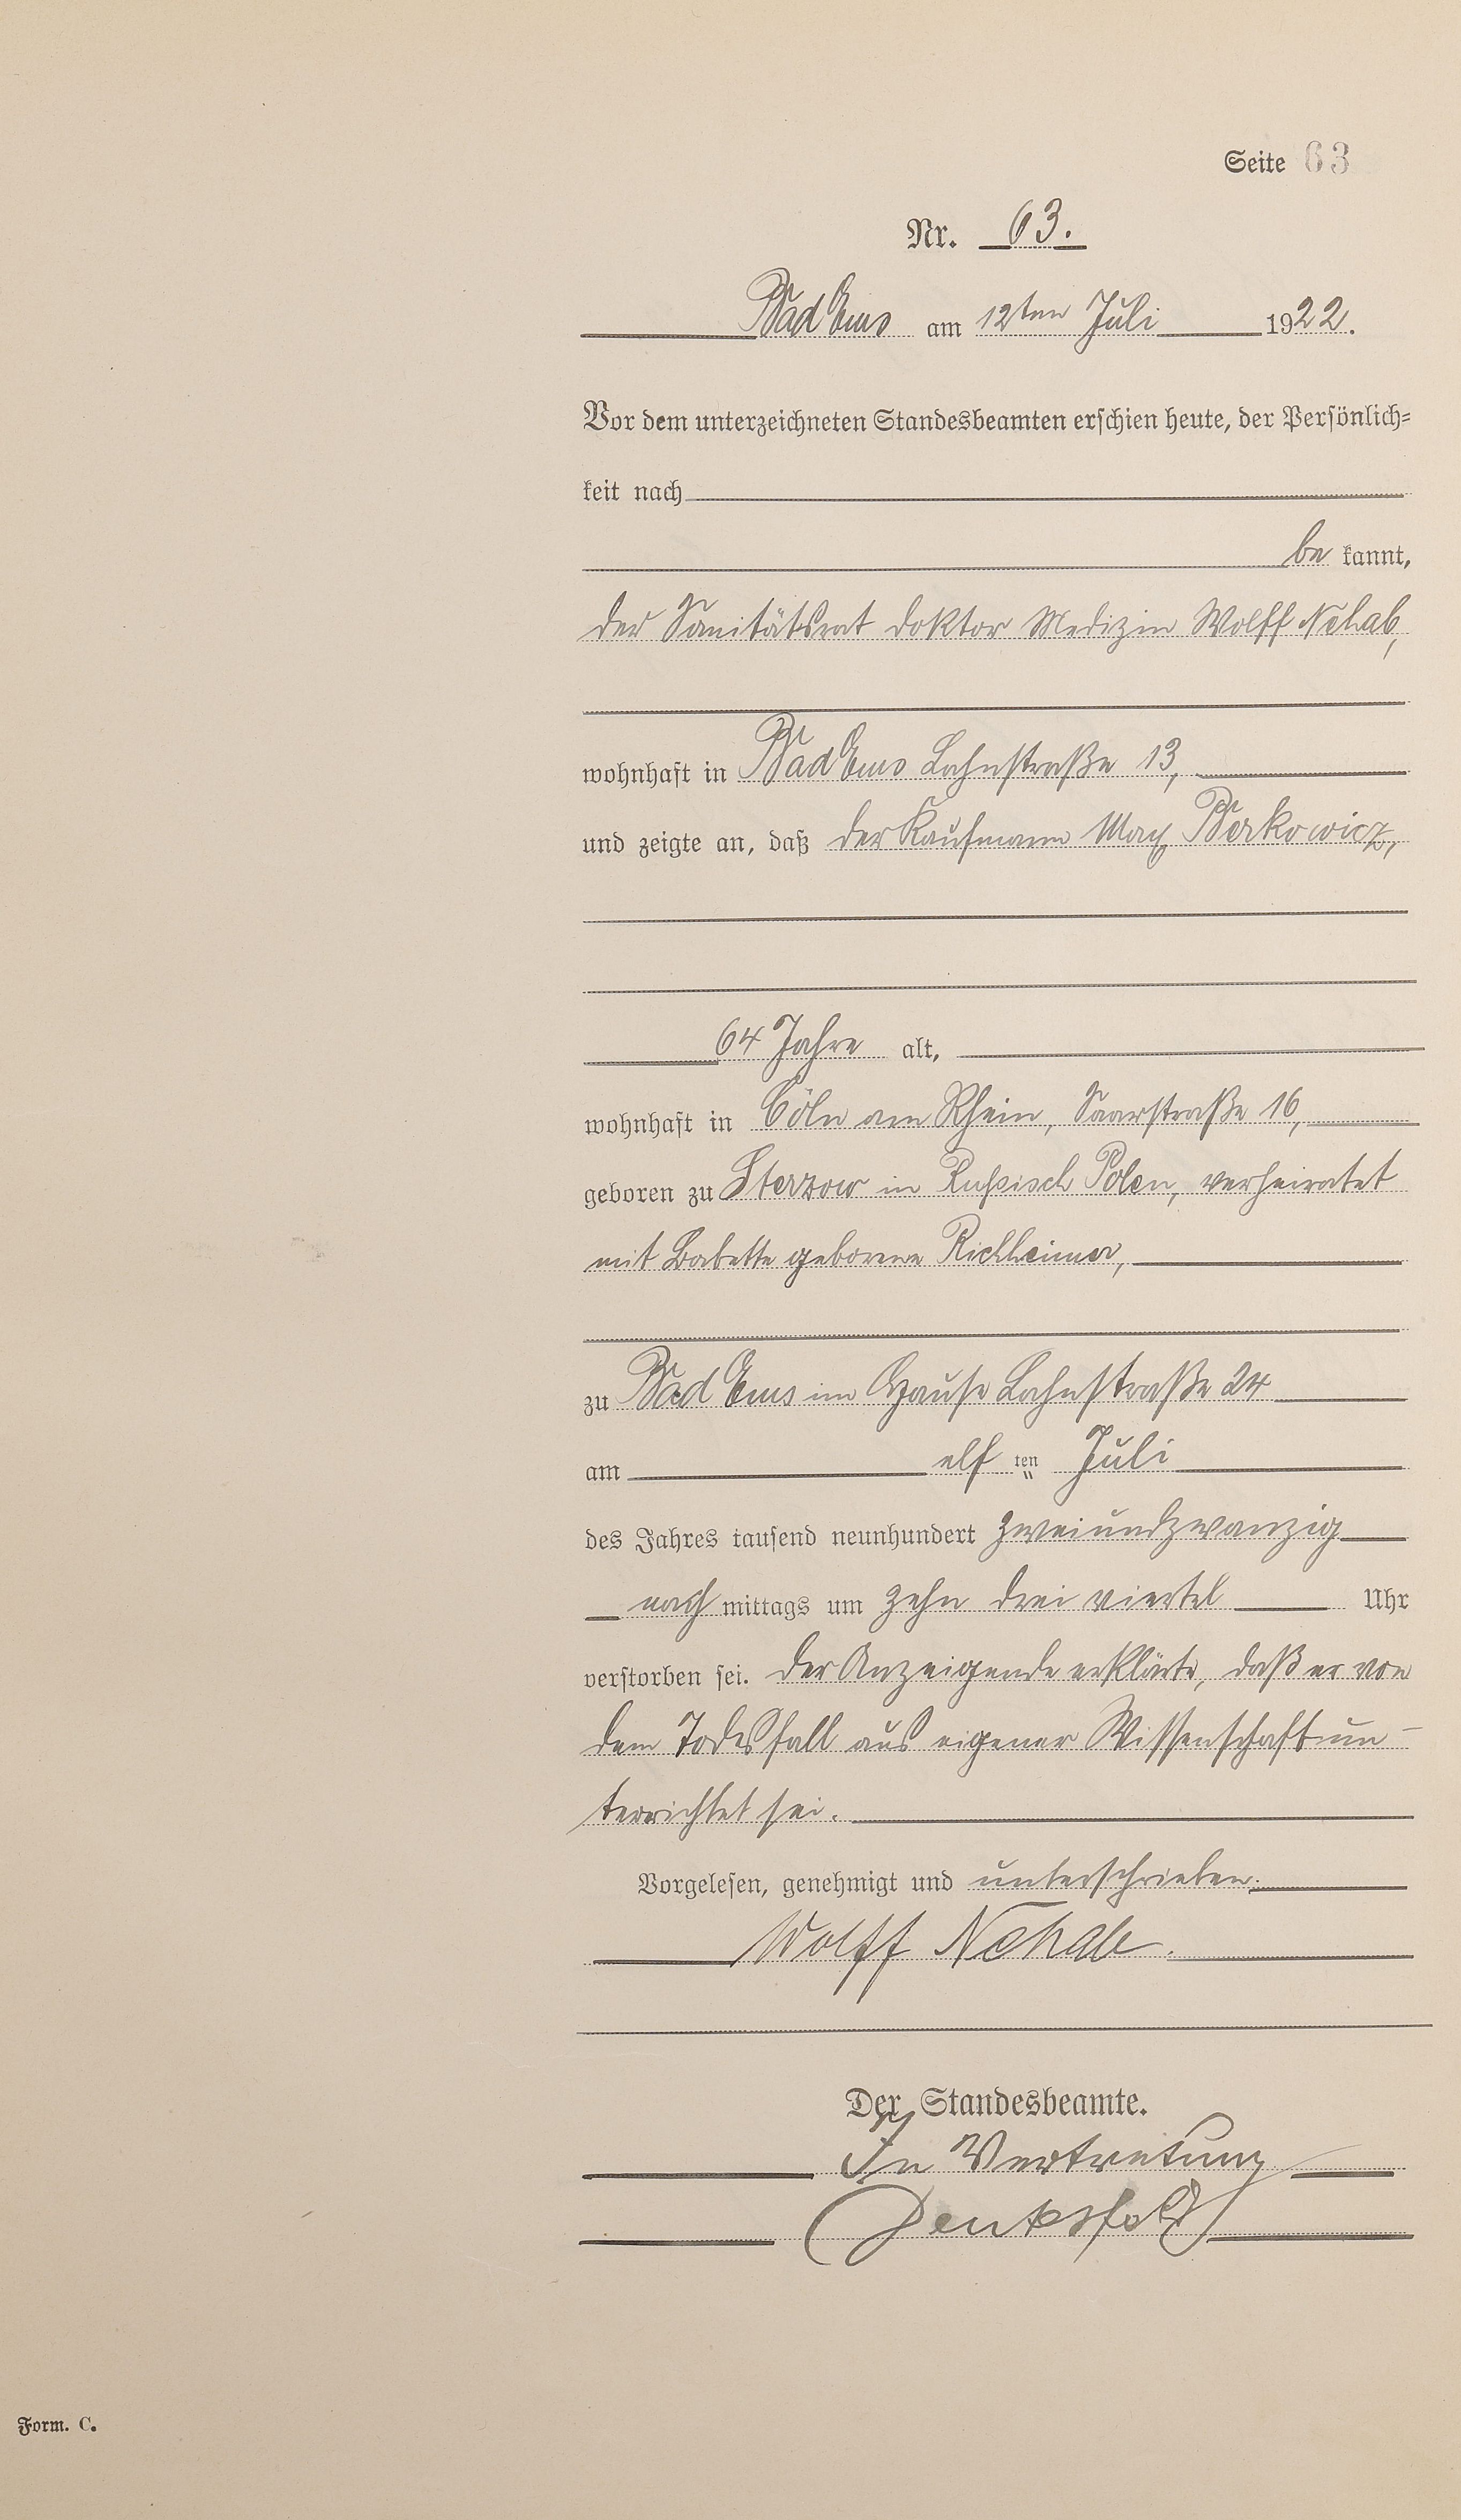 Seite 63
Nr. 63.
Bad Ems am 12ten Juli 1922.
Vor dem unterzeichneten Standesbeamten erschien heute, der Persönlich-
keit nach
be kannt,
der Sanitätsrat doktor Medizin Wolff Nehab,
wohnhaft in Bad Ems Lahnstraße 13,
und zeigte an, daß der Kaufmann Max Berkowicz,
64 Jahre alt,
wohnhaft in Cöln am Rhein, Saarstraße 16,
geboren zu Sterzow in Russisch Polen, verheiratet
mit Babette geborene Richheimer,
zu Bad Ems im Hause Lahnstraße 24
am elf ten Juli
des Jahres tausend neunhundert zweiundzwanzig
nach mittags um zehn drei viertel Uhr
verstorben sei. Der Anzeigende erklärte, daß er von
dem Todesfall aus eigener Wissenschaft un-
terrichtet sei.
Vorgelesen, genehmigt und unterschrieben.
Wolff Nehab.
Der Standesbeamte.
In Vertretung
Form. C.